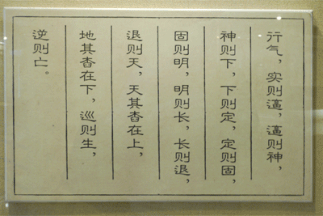 行气，实则，则神，
神则下，下则定，定则固，
固则明，明则长，长则退，
退则天，天其在上，
地其在下，巡则生，
逆则亡。